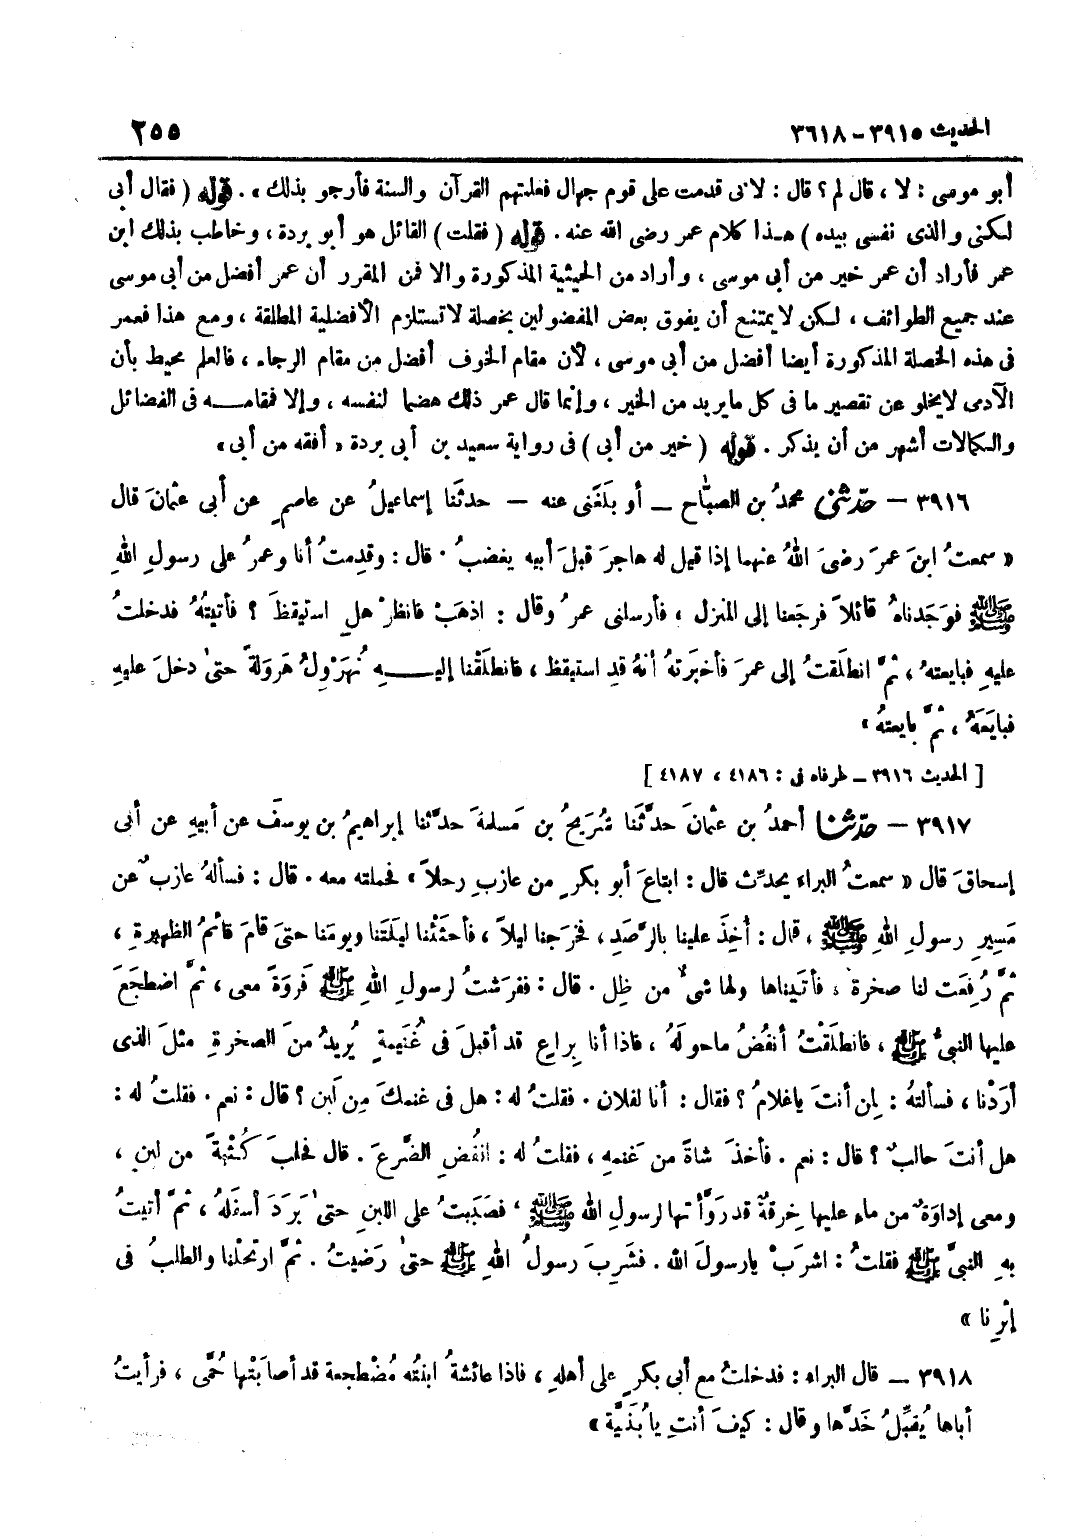 الحديث ٣٩١٥ – ٣٦١٨
٢٥٥
أبو موسى : لا ، قال لم ؟ قال : لأنى قدمت على قوم جهال فعلمتهم القرآن والسنة فأرجو بذلك » . قوله ( فقال أبى
لكنى والذى نفسى بيده ) هـذا كلام عمر رضى الله عنه . قوله ( فقلت ) القائل هو أبو بردة ، وخاطب بذلك ابن
عمر فأراد أن عمر خير من أبى موسى ، وأراد من الحيثية المذكورة والا فمن المقرر أن عمر أفضل من أبى موسى
عند جميع الطوائف ، لكن لا يمتنع أن يفوق بعض المفضولين بخصلة لا تستلزم الأفضلية المطلقة ، ومع هذا فعمر
فى هذه الخصلة المذكورة أيضا أفضل من أبى موسى ، لأن مقام الخوف أفضل من مقام الرجاء ، فالعلم محيط بأن
الآدمى لا يخلو عن تقصير ما فى كل ما يريد من الخير ، وإنما قال عمر ذلك هضما لنفسه ، وإلا فمقامـــه فى الفضائل
والكمالات أشهر من أن يذكر . قوله ( خير من أبى ) فى رواية سعيد بن أبى بردة « أفقه من أبى »
٣٩١٦ – حدّثنى محمدُ بن الصبَّاح – أو بلَغَنى عنه – حدثَنا إسماعيلُ عن عاصمٍ عن أبى عثمانَ قال
« سمعتُ ابنَ عمرَ رضىَ اللهُ عنهما إذا قيل له هاجرَ قبلَ أبيه يغضبُ . قال : وقدِمتُ أنا وعمرُ على رسولِ اللهِ
ﷺ فوَجَدناهُ قائلاً فرجَعنا إلى المنزل ، فأرسلنى عمرُ وقال : اذهَبْ فانظرْ هلِ استيقظَ ؟ فأتيتُهُ فدخلتُ
عليهِ فبايعتهُ ، ثمَّ انطلَقتُ إلى عمرَ فأخبَرتهُ أنهُ قدِ استيقظ ، فانطلَقْنا إليـــهِ نُهَرْوِلُ هَروَلةً حتىٰ دخلَ عليهِ
فبايَعَهُ ، ثمَّ بايعتهُ »
[ الحديث ٣٩١٦ – طرفاه فى : ٤١٨٦ ، ٤١٨٧ ]
٣٩١٧ – حدّثنا أحمدُ بن عثمانَ حدَّثَنا شُرَيحُ بن مَسلمةَ حدَّثنا إبراهيمُ بن يوسفَ عن أبيهِ عن أبى
إسحاقَ قال « سمعتُ البراء يحدِّث قال : ابتاعَ أبو بكرٍ من عازبٍ رحلاً » فحملته معه . قال : فسألهُ عازبٌ عن
مَسيرِ رسولِ اللهِ ﷺ ، قال : أُخِذَ علينا بالرَّصَدِ ، فخرَجنا ليلاً ، فأحثَثْنا ليلَتَنا ويومَنا حتىَ قامَ قائمُ الظهيرةِ ،
ثمَّ رُفِعَت لنا صخرة ، فأتَيناها ولها شىءٌ من ظل . قال : ففرَشتُ لرسولِ اللهِ ﷺ فَروَةً معى ، ثمَّ اضطجَعَ
عليها النبىُّ ﷺ ، فانطلَقْتُ أنفُضُ ما حولَهُ ، فاذا أنا بِراعٍ قد أقبلَ فى غُنَيمةٍ يُريدُ منَ الصخرةِ مثلَ الذى
أرَدْنا ، فسألتهُ : لِمن أنتَ ياغلامُ ؟ فقال : أنا لفلان . فقلتُ له : هل فى غنمكَ مِن لَبن ؟ قال : نعم . فقلتُ له :
هل أنتَ حالبٌ ؟ قال : نعم . فأخذَ شاةً من غنمهِ ، فقلتُ له : انفُضِ الضَّرعَ . قال فحلبَ كُثبةً من لبنٍ ،
ومعى إداوَةٌ من ماءٍ عليها خِرقةٌ قد رَوَّأتها لرسولِ الله ﷺ ، فصَبَبتُ على اللبنِ حتىٰ بَرَدَ أسفَلهُ ، ثمَّ أتيتُ
بهِ النبىَّ ﷺ فقلتُ : اشرَبْ يارسولَ الله . فشَرِبَ رسولُ اللهِ ﷺ حتىٰ رَضيتُ . ثمَّ ارتحلْنا والطلبُ فى
إثرِنا »
٣٩١٨ – قال البراء : فدخلتُ مع أبى بكرٍ على أهلهِ ، فاذا عائشةُ ابنتُه مُضْطجعة قد أصابَتْها حُمَّى ، فرأيتُ
أباها يُقبِّلُ خَدَّها وقال : كيفَ أنتِ يا بُنَيَّة »